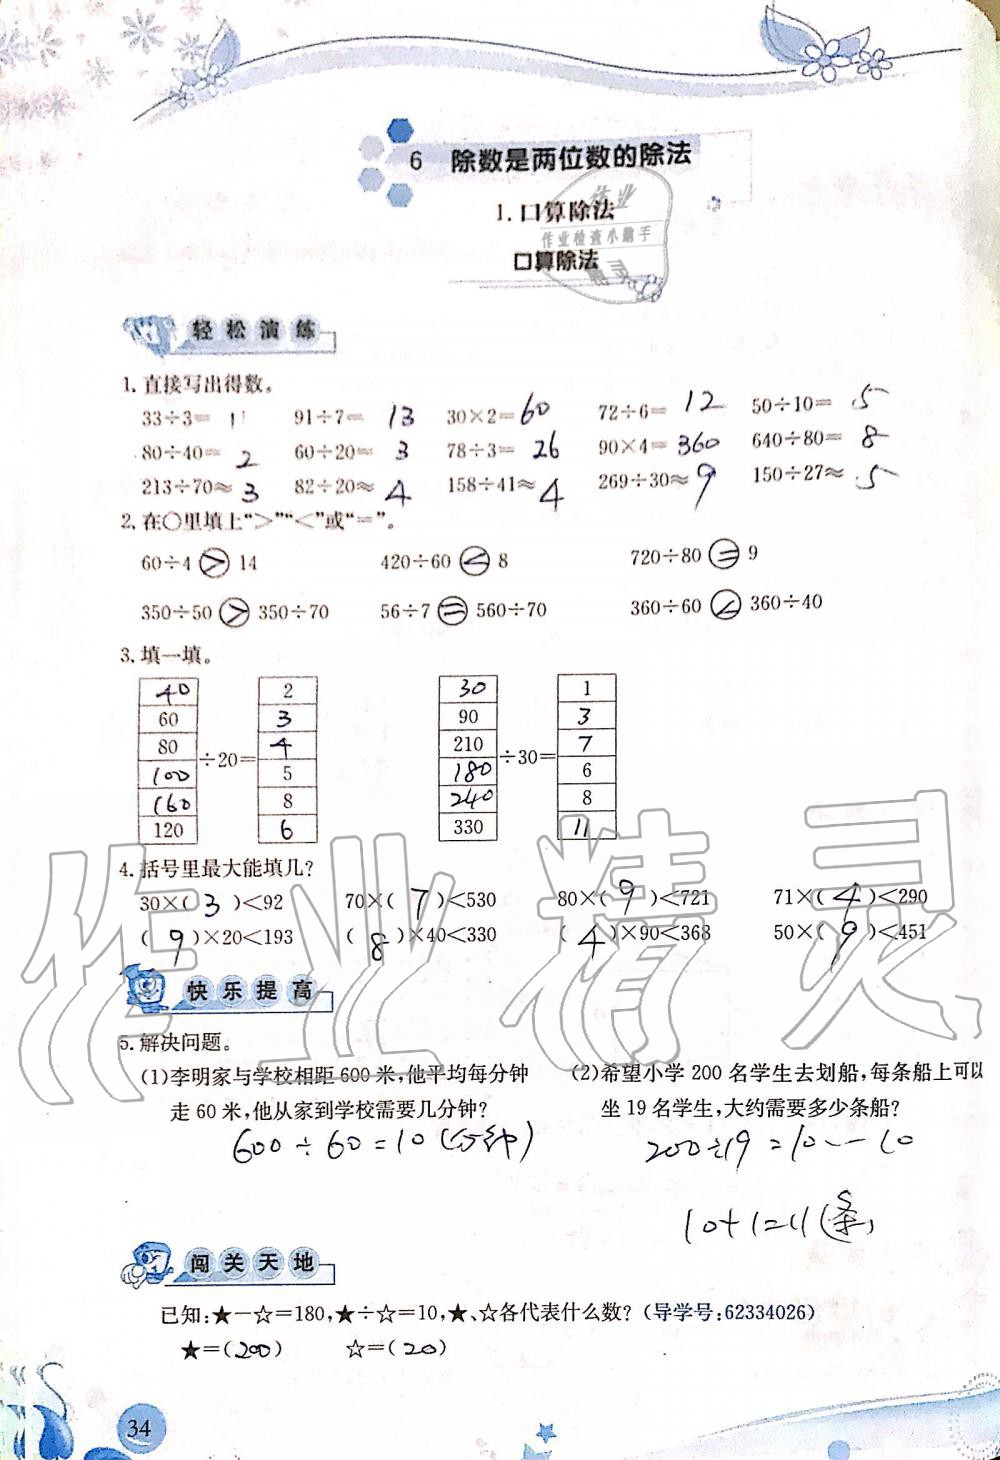 6 除数是两位数的除法
1.口算除法
作业
作业检查小助手
精灵
口算除法
轻松演练
1.直接写出得数。
33÷3= 11 91÷7= 13 30×2= 60 72÷6= 12 50÷10= 5
80÷40= 2 60÷20= 3 78÷3= 26 90×4= 360 640÷80= 8
213÷70≈ 3 82÷20≈ 4 158÷41≈ 4 269÷30≈ 9 150÷27≈ 5
2.在○里填上“>”“<”或“=”。
60÷4 > 14 420÷60 < 8 720÷80 = 9
350÷50 > 350÷70 56÷7 = 560÷70 360÷60 < 360÷40
3.填一填。
40 2 30 1
60 3 90 3
80 4 210 7
÷20= ÷30=
100 5 180 6
160 8 240 8
120 6 330 11
4.括号里最大能填几?
30×( 3 )<92 70×( 7 )<530 80×( 9 )<721 71×( 4 )<290
( 9 )×20<193 ( 8 )×40<330 ( 4 )×90<368 50×( 9 )<451
作业精灵
快乐提高
5.解决问题。
(1)李明家与学校相距600米,他平均每分钟
走60米,他从家到学校需要几分钟?
600÷60=10(分钟)
(2)希望小学200名学生去划船,每条船上可以
坐19名学生,大约需要多少条船?
200÷19=10…10
10+1=11(条)
闯关天地
已知:★-☆=180,★÷☆=10,★、☆各代表什么数?(导学号:62334026)
★=(200) ☆=(20)
34